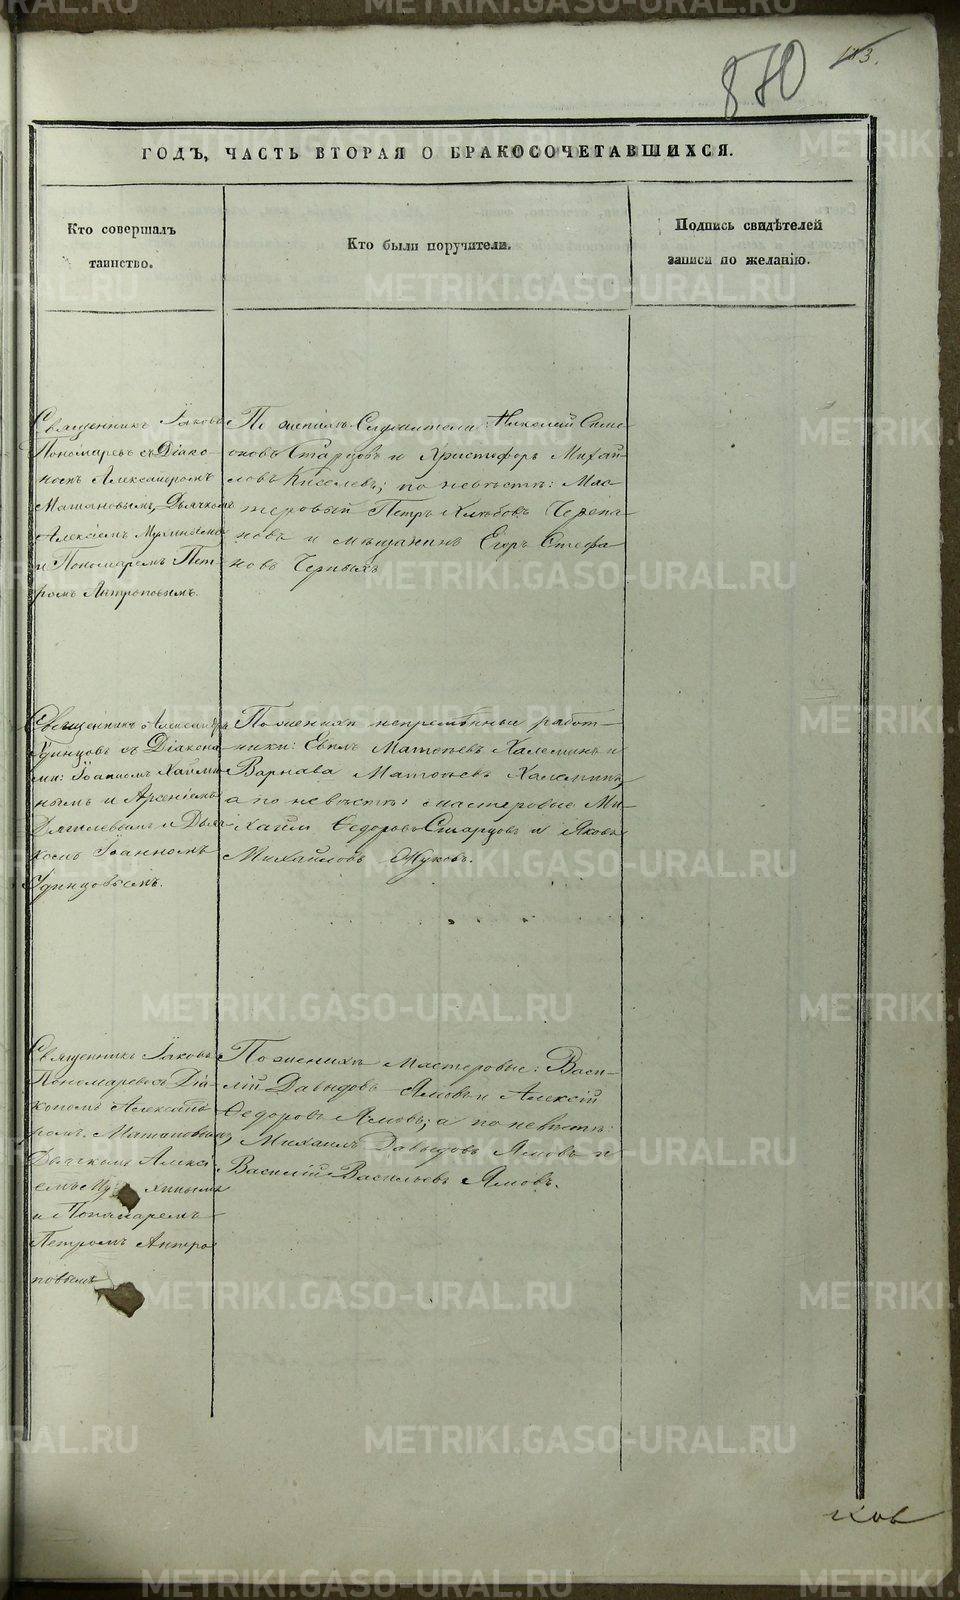 870
113.
ГОДЪ, ЧАСТЬ ВТОРАЯ О БРАКОСОЧЕТАВШИХСЯ.
Кто совершалъ
таинство.
Кто были поручители.
Подпись свидѣтелей
записи по желанію.
Священникъ Іаковъ
Пономаревъ съ Діако-
номъ Александромъ
Дьячкомъ
Алексіемъ
и Пономаремъ Пет-
ромъ Антроповымъ.
По женихѣ Служители: Николай Симе-
оновъ Старцовъ и Христофоръ Михай-
ловъ Киселевъ; по невѣстѣ: Мас-
теровый Петръ Глѣбовъ Черепа-
новъ и мѣщанинъ Егоръ Стефа-
новъ Черныхъ
Священникъ Александръ
Удинцовъ съ Діакона-
ми: Іоанномъ
нымъ и Арсеніемъ
и Дьяч-
комъ Іоанномъ
Удинцовымъ.
По женихѣ непремѣнные работ-
ники: Евѣимъ Матѳеевъ Халеминъ и
Варнава Матѳеевъ Халеминъ,
а по невѣстѣ: мастеровые Ми-
хаилъ Ѳедоровъ Старцовъ и Яковъ
Михайловъ Жуковъ.
Священникъ Іаковъ
Пономаревъ съ Діа-
кономъ Александ-
ромъ
Дьячкомъ Алексі-
емъ
и Пономаремъ
Петромъ Антро-
повымъ
По женихѣ мастеровые: Васи-
лій Давыдовъ Ямовъ и Алексій
Ѳедоровъ Ямовъ; а по невѣстѣ:
Михаилъ Давыдовъ Ямовъ и
Василій Васильевъ Ямовъ.
METRIKI.GASO-URAL.RU